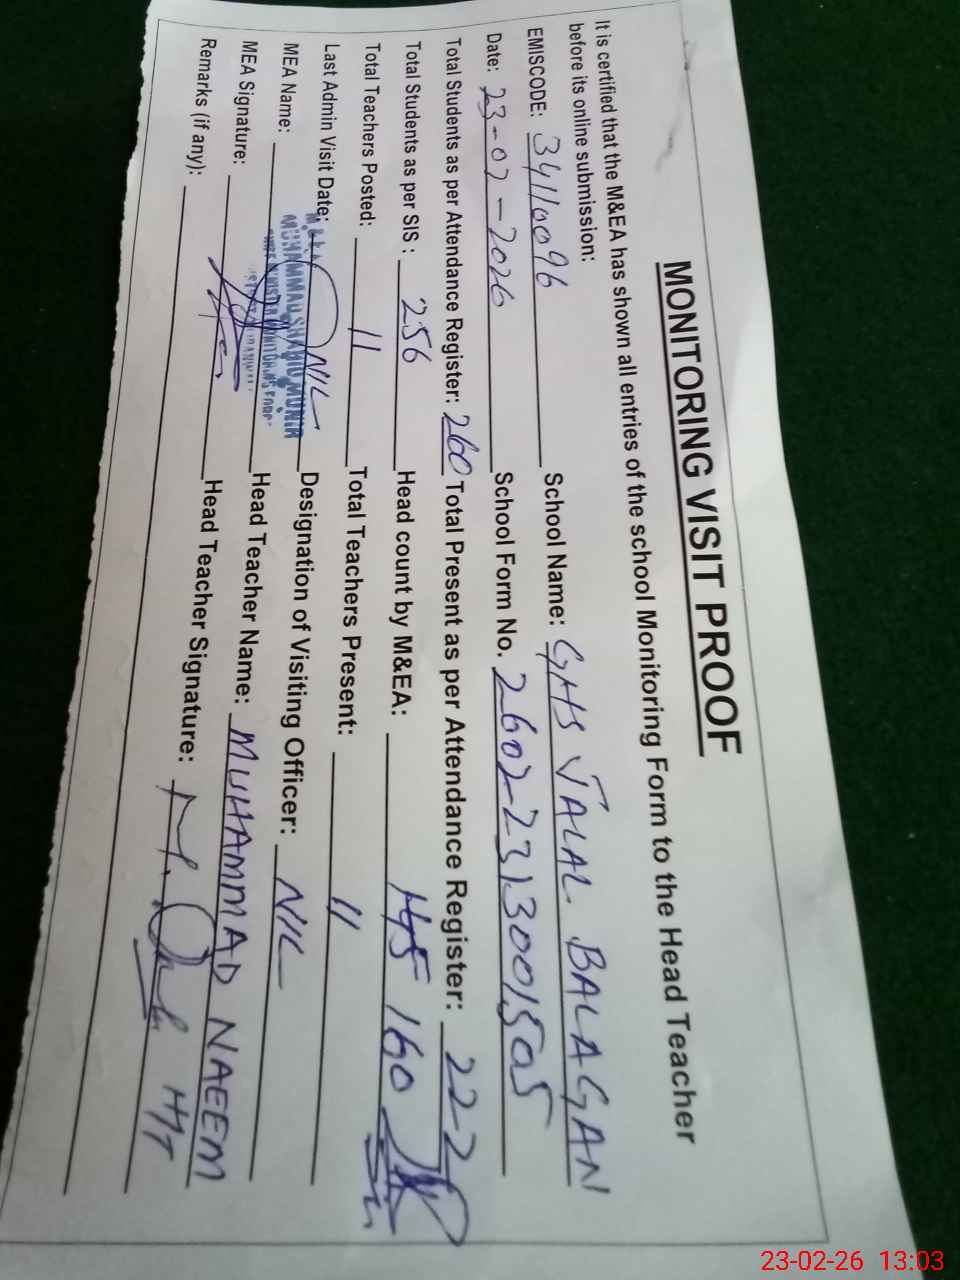 MONITORING VISIT PROOF
It is certified that the M&EA has shown all entries of the school Monitoring Form to the Head Teacher
before its online submission:
EMISCODE: 34110096 School Name: GHS JALAL BALAGAN
Date: 23-02-2026 School Form No. 2602-2313001505
Total Students as per Attendance Register: 260 Total Present as per Attendance Register: 222
Total Students as per SIS : 256 Head count by M&EA: 160
Total Teachers Posted: 11 Total Teachers Present: 11
Last Admin Visit Date: NIL Designation of Visiting Officer: NIL
MEA Name: MUHAMMAD SHAHID MUNIR Head Teacher Name: MUHAMMAD NAEEM
MEA Signature: Head Teacher Signature: HT
Remarks (if any):
23-02-26 13:03